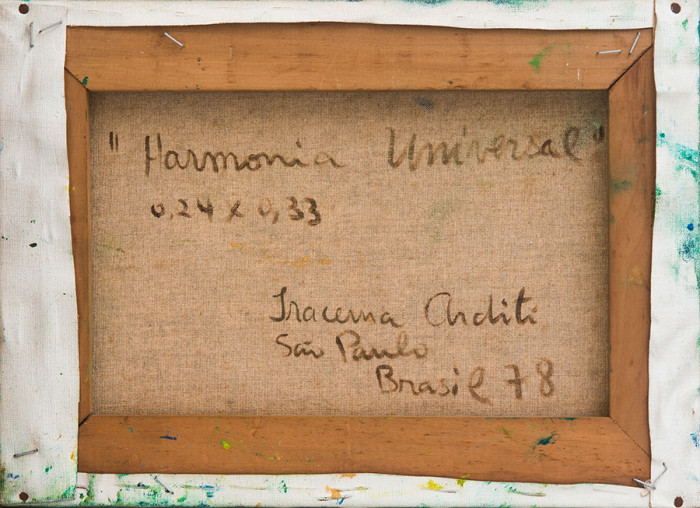 "Harmonia Universal"
0,24 x 0,33
Iracema Arditi
São Paulo
Brasil 78